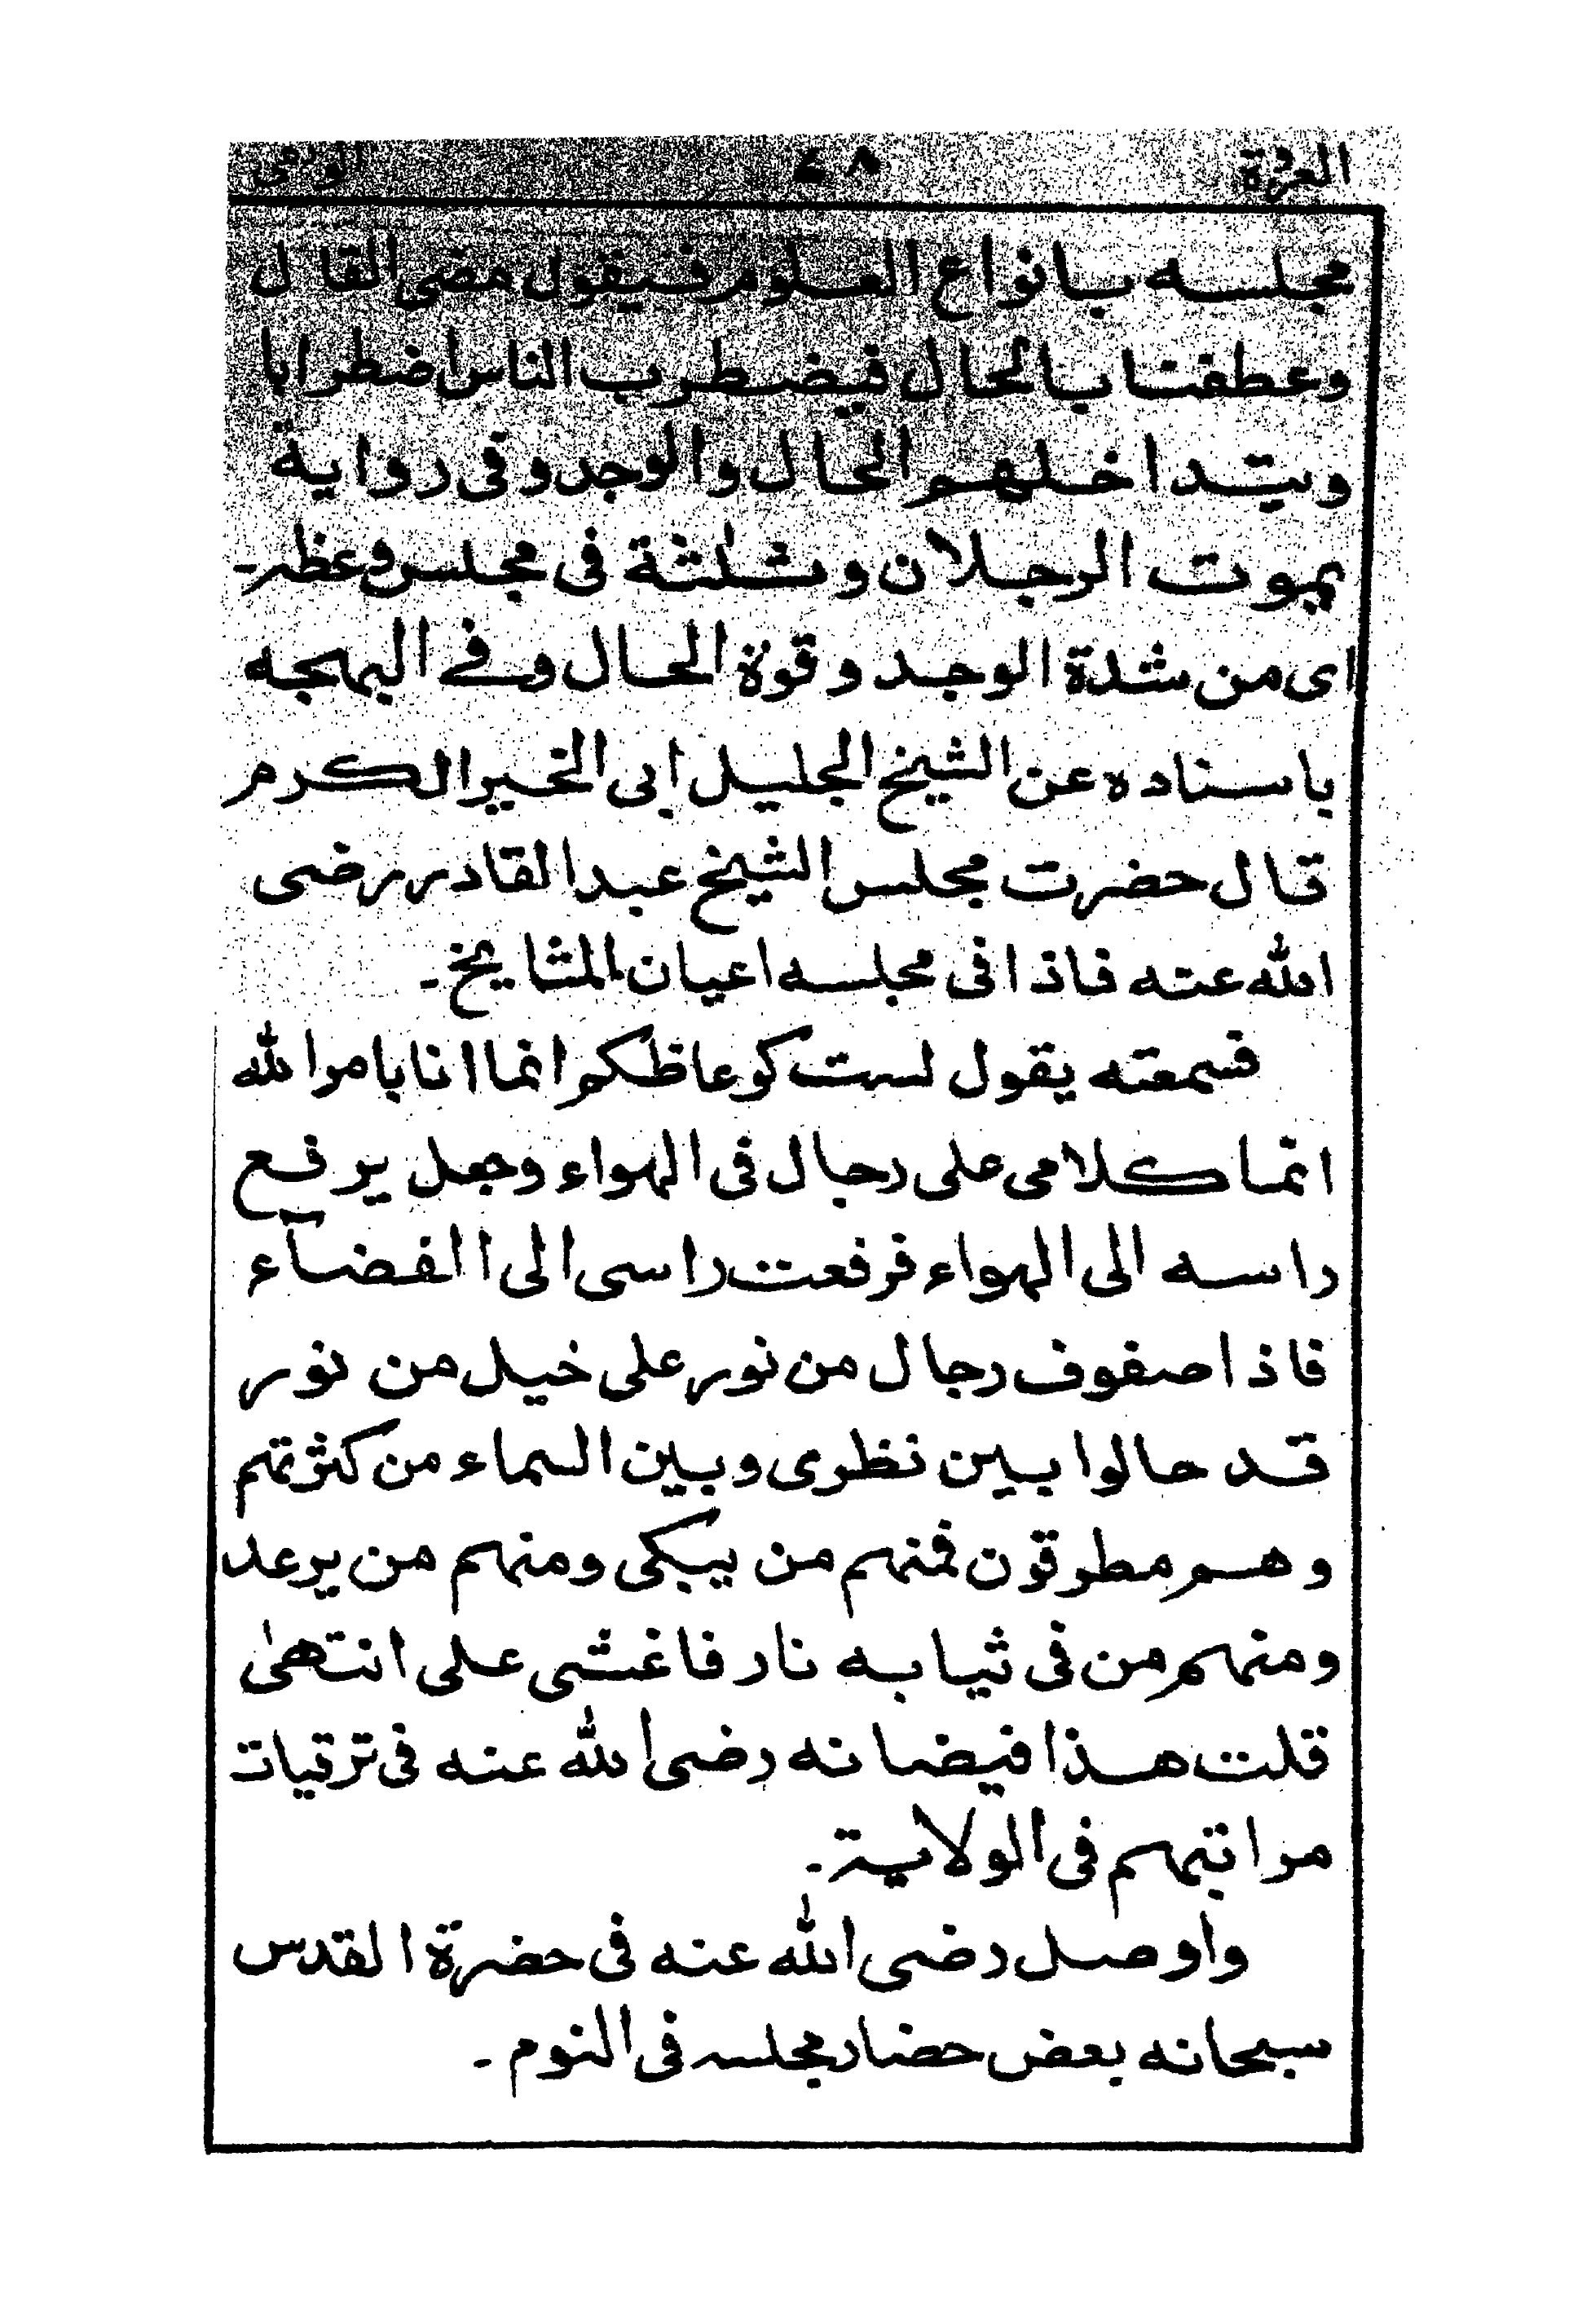 العزة ٤٨
مجلسه بانواع العلوم فيقول مضى القال
وعطفنا بالحال فيضطرب الناس اضطرابا
ويتداخلهم الحال والوجد وفى رواية
يموت الرجلان وثلثة فى مجلس وعظه-
اى من شدة الوجد وقوة الحال وفے البهجه
باسناده عن الشيخ الجليل ابى الخير الكرم
قال حضرت مجلس الشيخ عبد القادر رضى
الله عنه فاذا فى مجلسه اعيان المشايخ-
فسمعته يقول لست كوعاظكم انما انا بامر الله
انما كلامى على رجال فى الهواء وجعل يرفع
راسه الى الهواء فرفعت راسى الى الفضآء
فاذا صفوف رجال من نور على خيل من نور
قد حالوا بين نظرى وبين السماء من كثرتهم
وهم مطرقون فمنهم من يبكى ومنهم من يرعد
ومنهم من فى ثيابه نار فاغشى على انتهىٰ
قلت هذا فيضانه رضى الله عنه فى ترقيات
مراتبهم فى الولاية-
واوصل رضى الله عنه فى حضرة القدس
سبحانه بعض حضار مجلسه فى النوم-